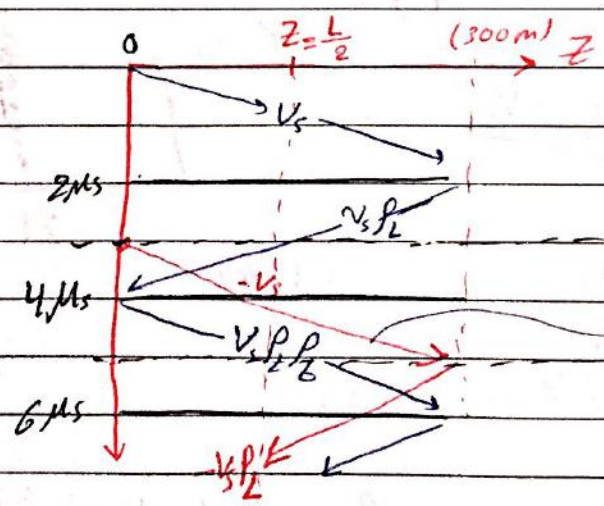 0 Z=L/2 (300m) Z
Vs
2μs
VsρL
-Vs
4μs
VsρLρg
6μs
-VsρL